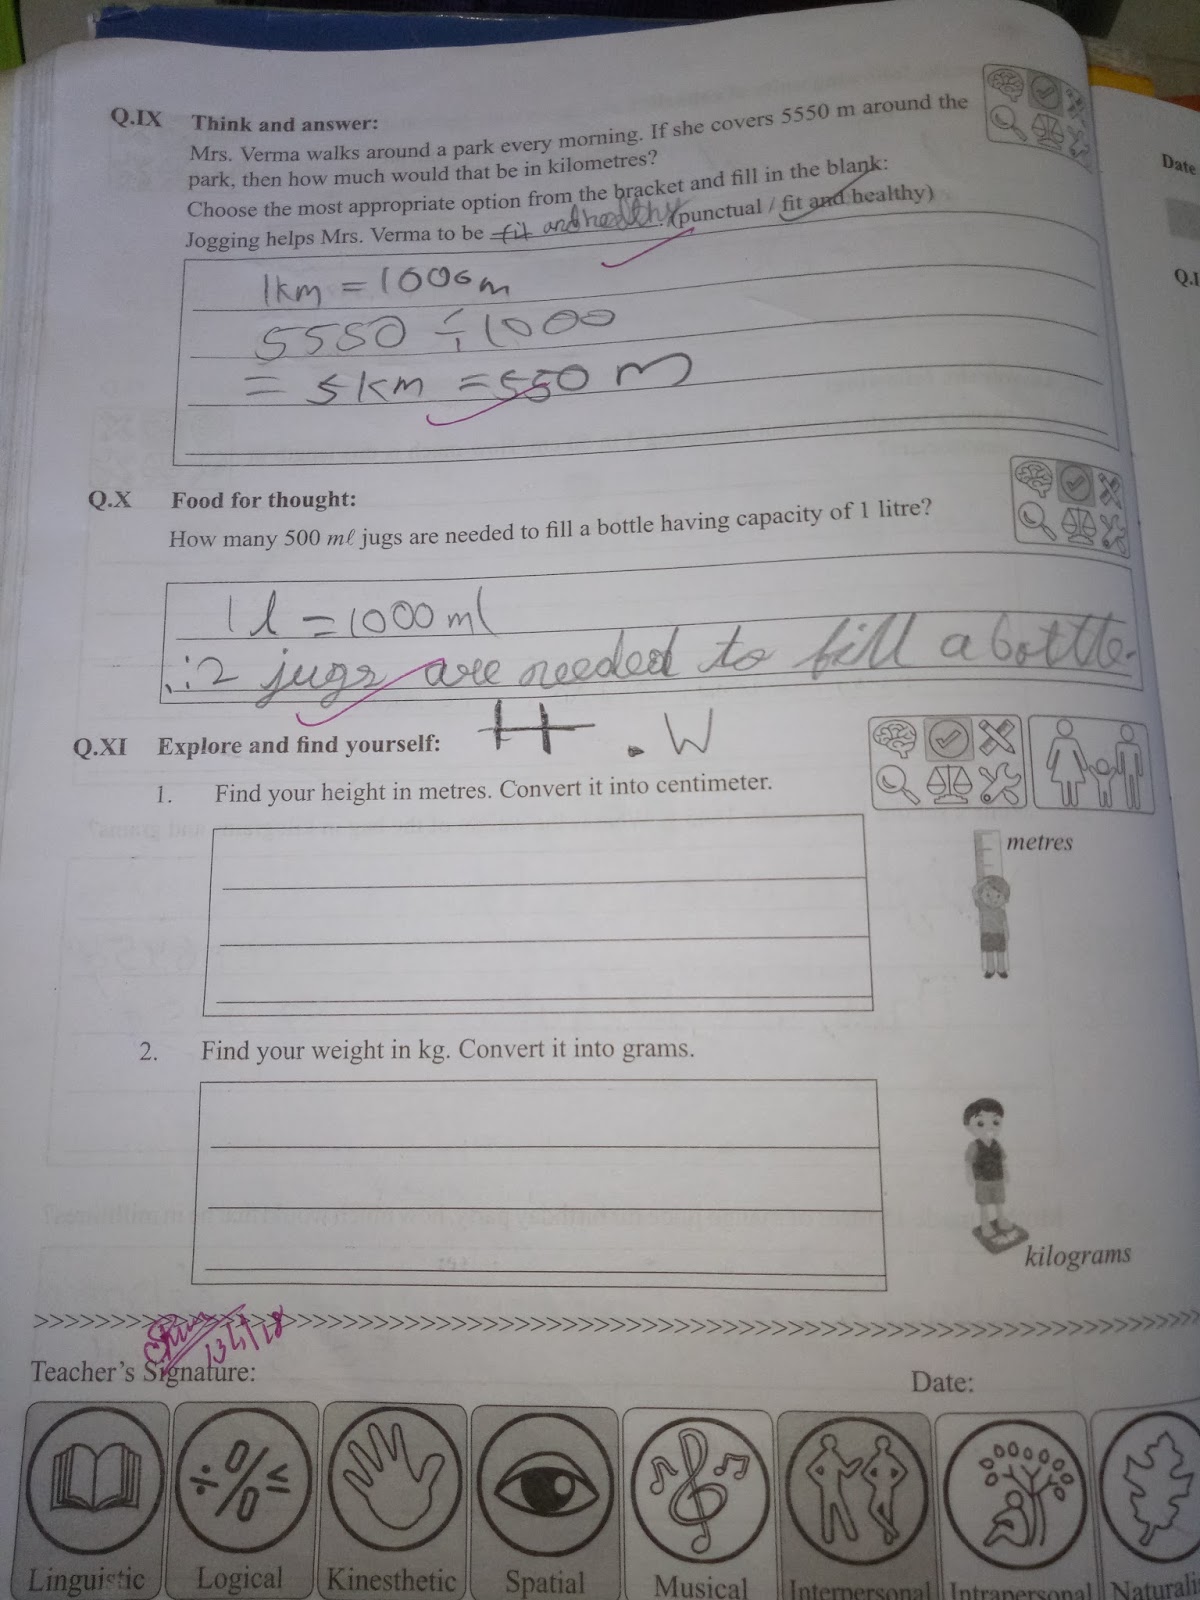 Q.IX Think and answer:
Mrs. Verma walks around a park every morning. If she covers 5550 m around the
park, then how much would that be in kilometres?
Choose the most appropriate option from the bracket and fill in the blank:
Jogging helps Mrs. Verma to be fit and healthy. (punctual / fit and healthy)
1km = 1000m
5550 ÷ 1000
= 5 km = 550 m
Q.X Food for thought:
How many 500 mℓ jugs are needed to fill a bottle having capacity of 1 litre?
1 l = 1000 ml
∴ 2 jugs are needed to fill a bottle.
Q.XI Explore and find yourself: H.W
1. Find your height in metres. Convert it into centimeter.
metres
2. Find your weight in kg. Convert it into grams.
kilograms
Teacher's Signature:
Date:
Linguistic Logical Kinesthetic Spatial Musical Interpersonal Intrapersonal Naturali
Date
Q.I